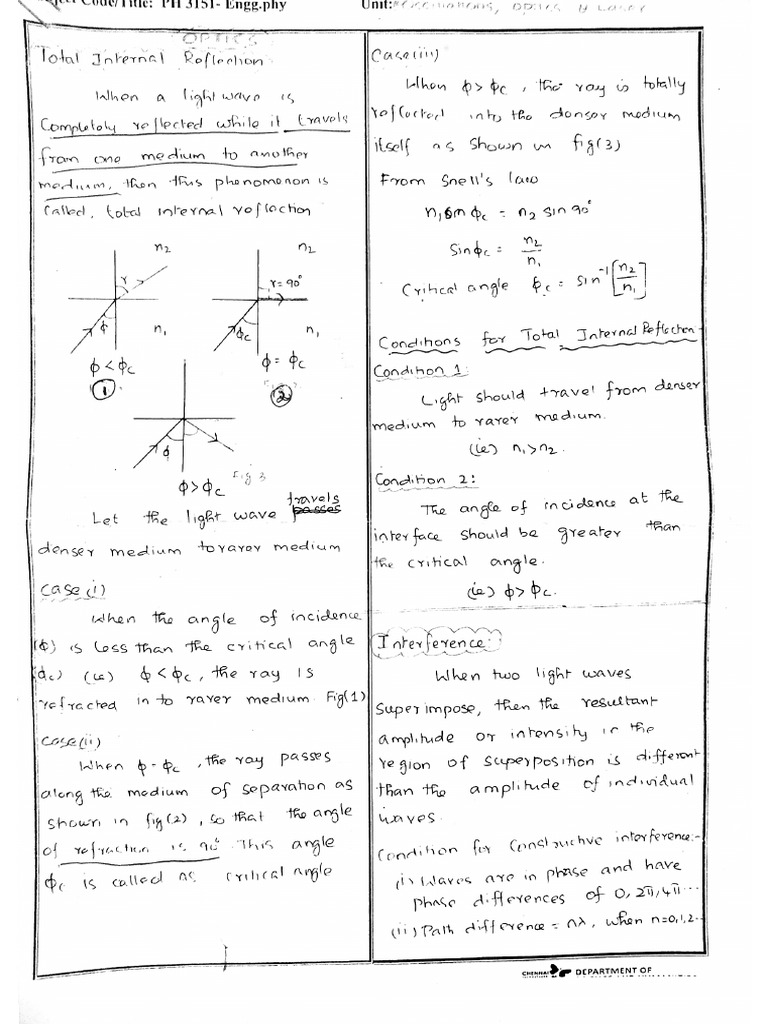 ject Code/Title: PH 3151- Engg.phy
Unit: Oscillations, Optics & Laser
OPTICS
Total Internal Reflection
When a light wave is
Completely reflected while it travels
from one medium to another
medium, then this phenomenon is
Called, total internal reflection
n2
n2
r
r=90°
ϕ
n1
ϕc
n1
ϕ<ϕc
ϕ= ϕc
1
2
ϕ
ϕ>ϕc
Fig 3
travels
Let the light wave passes
denser medium to rarer medium
Case (i)
When the angle of incidence
(ϕ) is less than the critical angle
(ϕc) (ie) ϕ<ϕc, the ray is
refracted in to rarer medium Fig(1)
Case(ii)
When ϕ-ϕc, the ray passes
along the medium of separation as
shown in fig(2), so that the angle
of refraction is 90° This angle
ϕc is called as critical angle
Case(iii)
When ϕ>ϕc, the ray is totally
reflected into the denser medium
itself as shown in fig(3)
From Snell's law
n1 sin ϕc = n2 sin 90°
Sin ϕc = n2/n1
Critical angle ϕc = sin⁻¹[n2/n1]
Conditions for Total Internal Reflection-
Condition 1:
Light should travel from denser
medium to rarer medium.
(ie) n1>n2.
Condition 2:
The angle of incidence at the
interface should be greater than
the critical angle.
(ie) ϕ>ϕc.
Interference:
When two light waves
Superimpose, then the resultant
amplitude or intensity in the
region of superposition is different
than the amplitude of individual
waves.
Condition for Constructive interference:-
(i) Waves are in phase and have
phase differences of 0, 2π, 4π...
(ii) Path difference = nλ, when n=0,1,2..
CHENNAI
DEPARTMENT OF